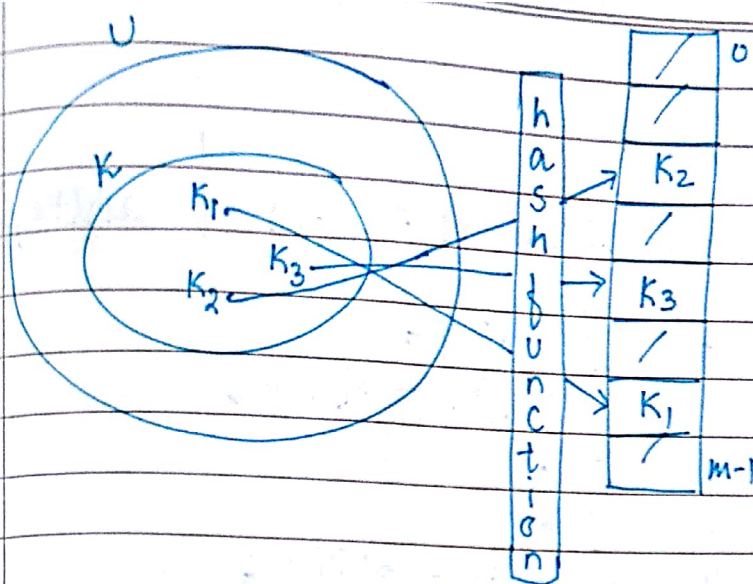 U
K
K1
K3
K2
hash function
0
K2
K3
K1
m-1